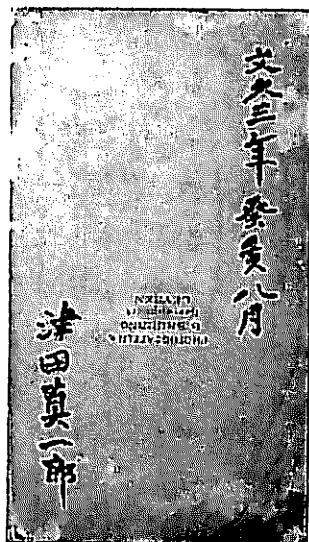 文久三年癸亥八月
津田真一郎